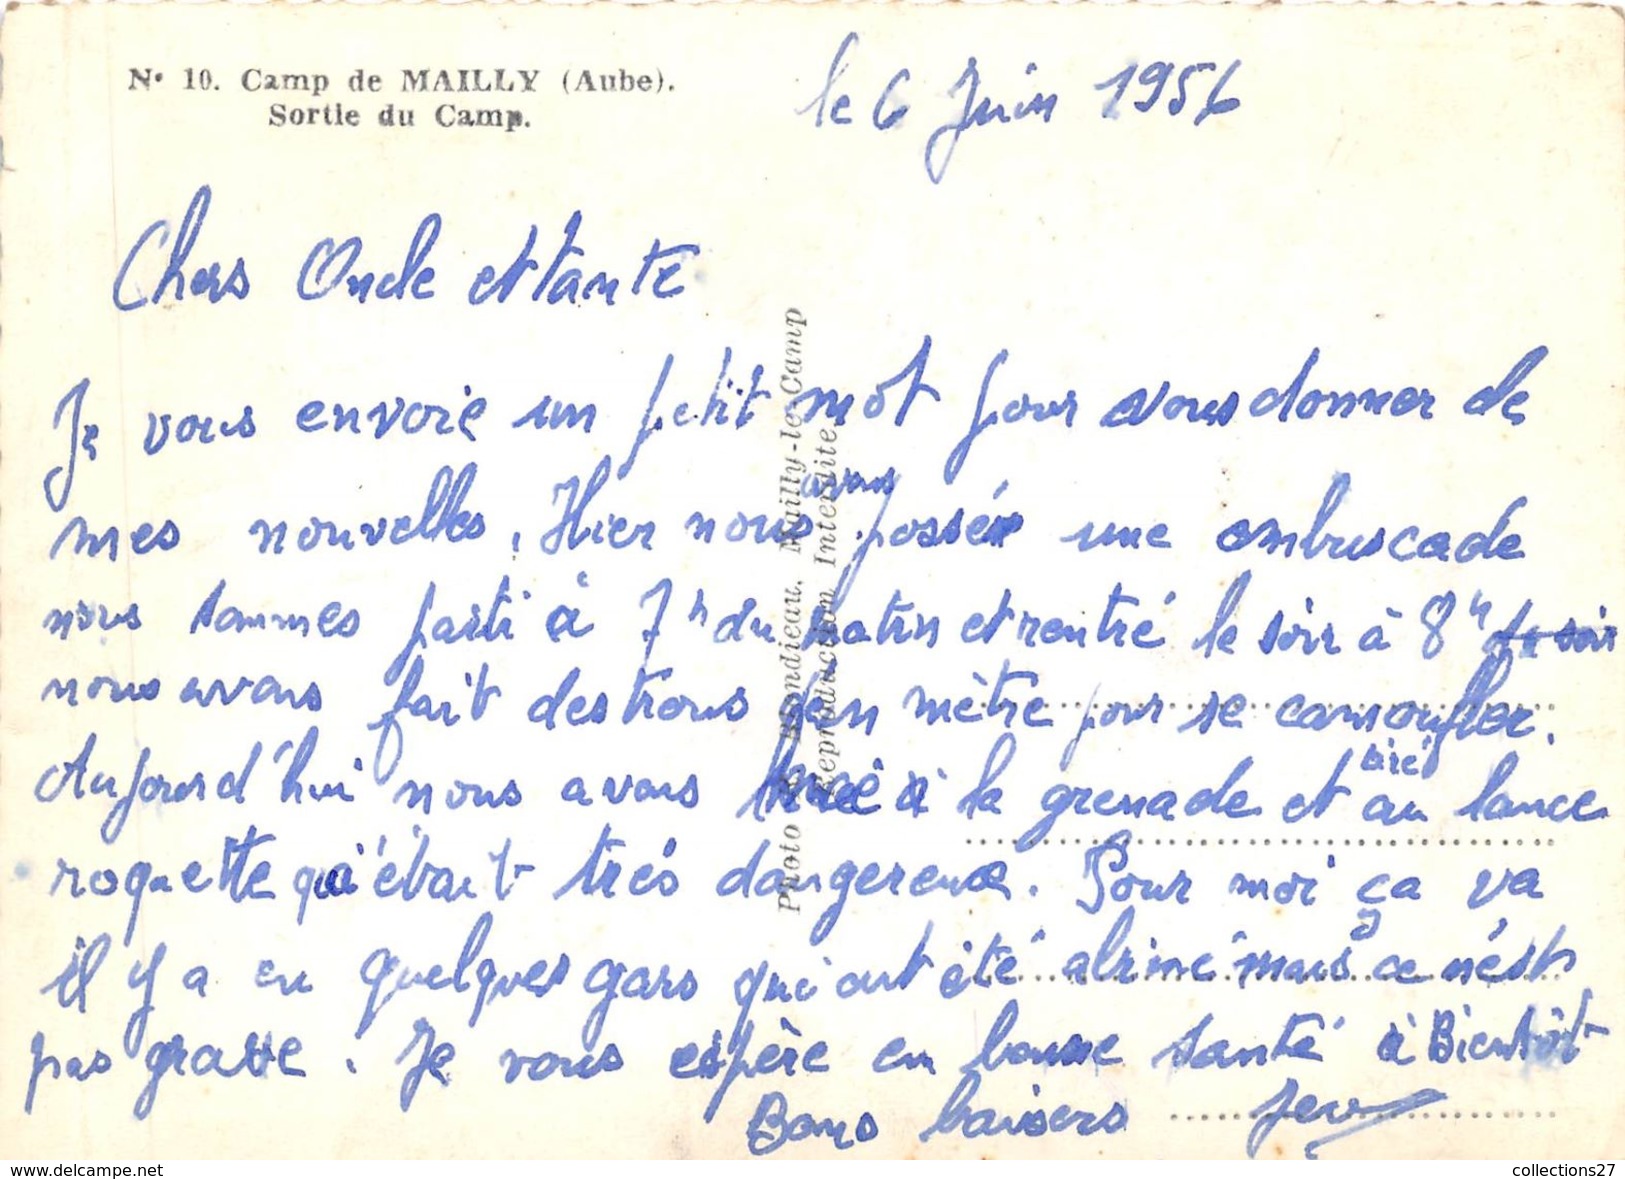 N° 10. Camp de MAILLY (Aube).
Sortie du Camp.
le 6 Juin 1956
Chers Oncle et tante
Je vous envoie un petit mot pour vous donner de
mes nouvelles, Hier nous avons possé une ambuscade
nous sommes parti à 7h du matin et rentré le soir à 8h du soir
nous avons fait des trous d'un mètre pour se camoufler.
Aujourd'hui nous avons tiré à la grenade et tiré au lance
roquette qui était très dangereux. Pour moi ça va
il y a eu quelques gars qui ont été abimé mais ce n'est
pas grave. Je vous espère en bonne santé à Bientôt
Bons baisers
Photo Mailly-le-Camp
Reproduction Interdite
collections27